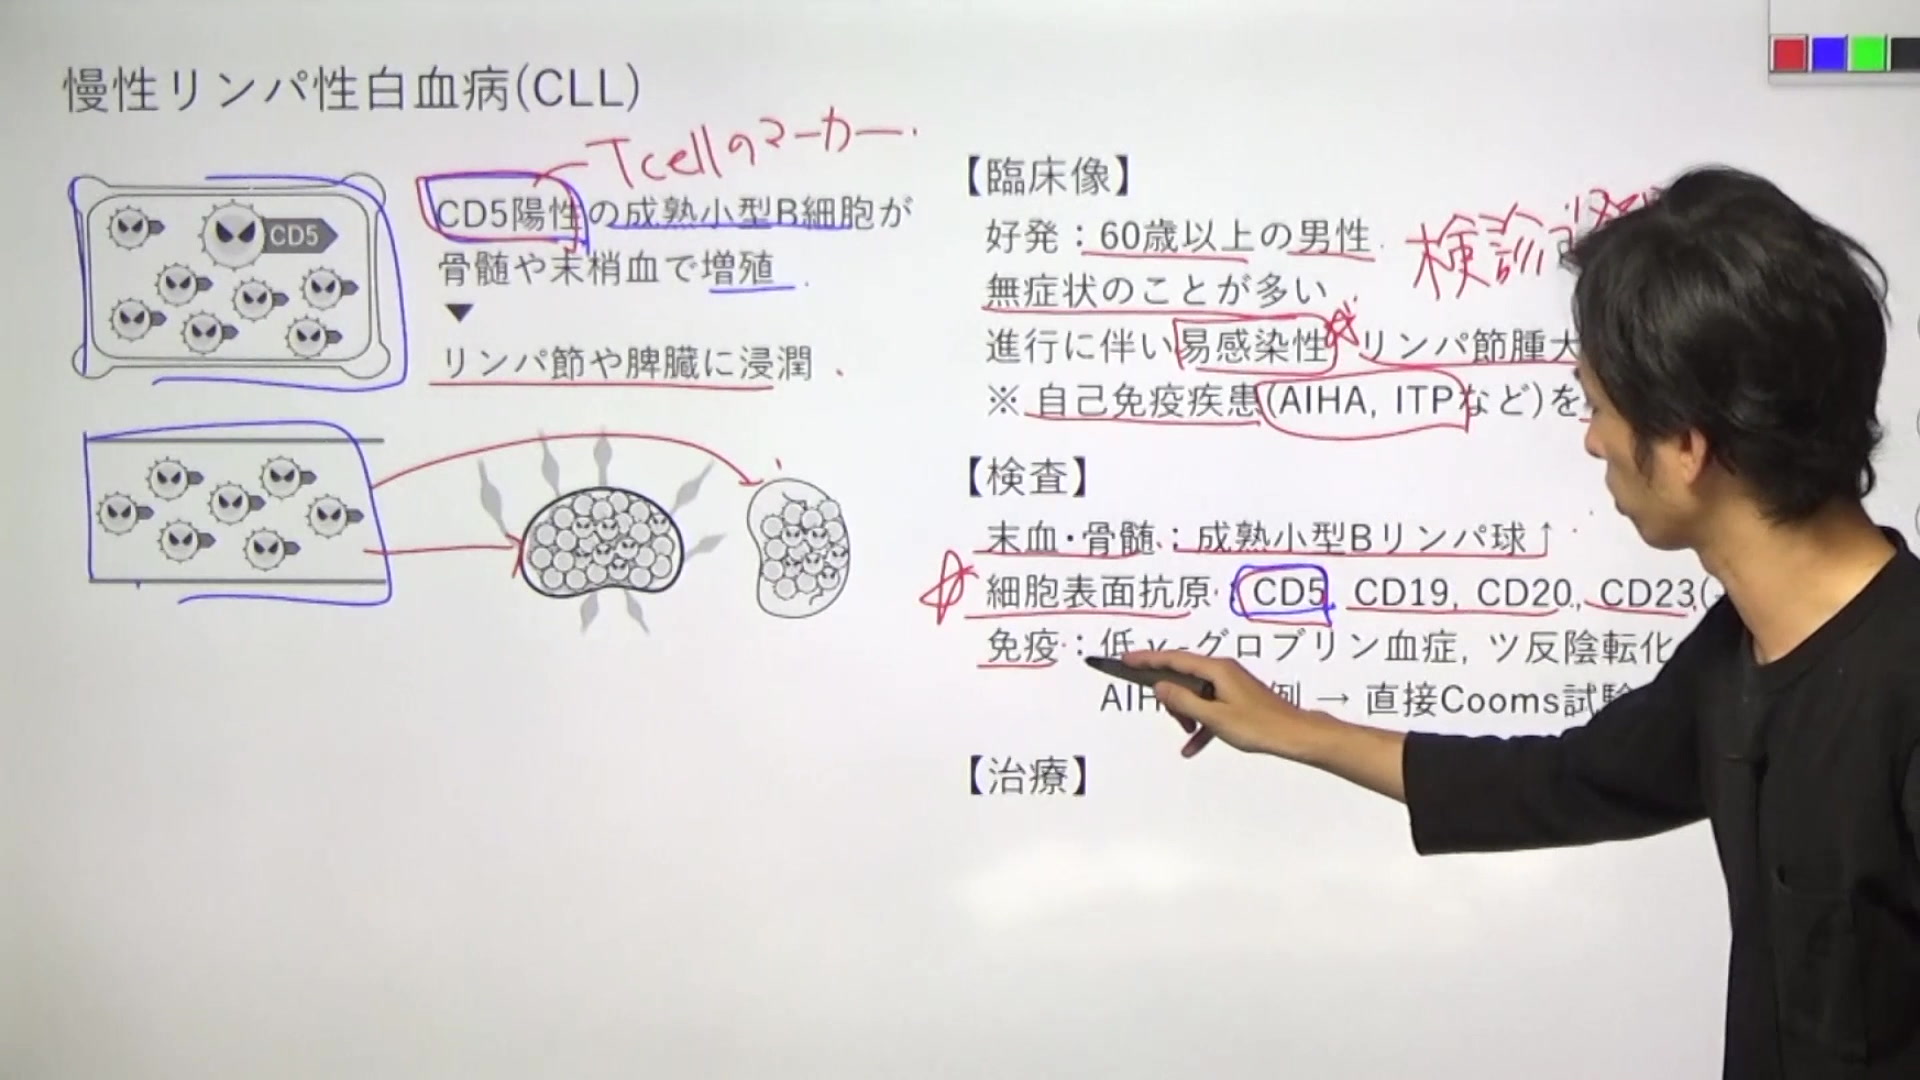 慢性リンパ性白血病(CLL)
Tcellのマーカー
CD5
CD5陽性の成熟小型B細胞が
骨髄や末梢血で増殖
▼
リンパ節や脾臓に浸潤
【臨床像】
好発：60歳以上の男性
検診
無症状のことが多い
進行に伴い易感染性 リンパ節腫大
※ 自己免疫疾患(AIHA, ITPなど)を
【検査】
末血・骨髄：成熟小型Bリンパ球↑
細胞表面抗原 CD5, CD19, CD20, CD23(
免疫：低γ-グロブリン血症, ツ反陰転化
AIH 例 → 直接Cooms試験
【治療】